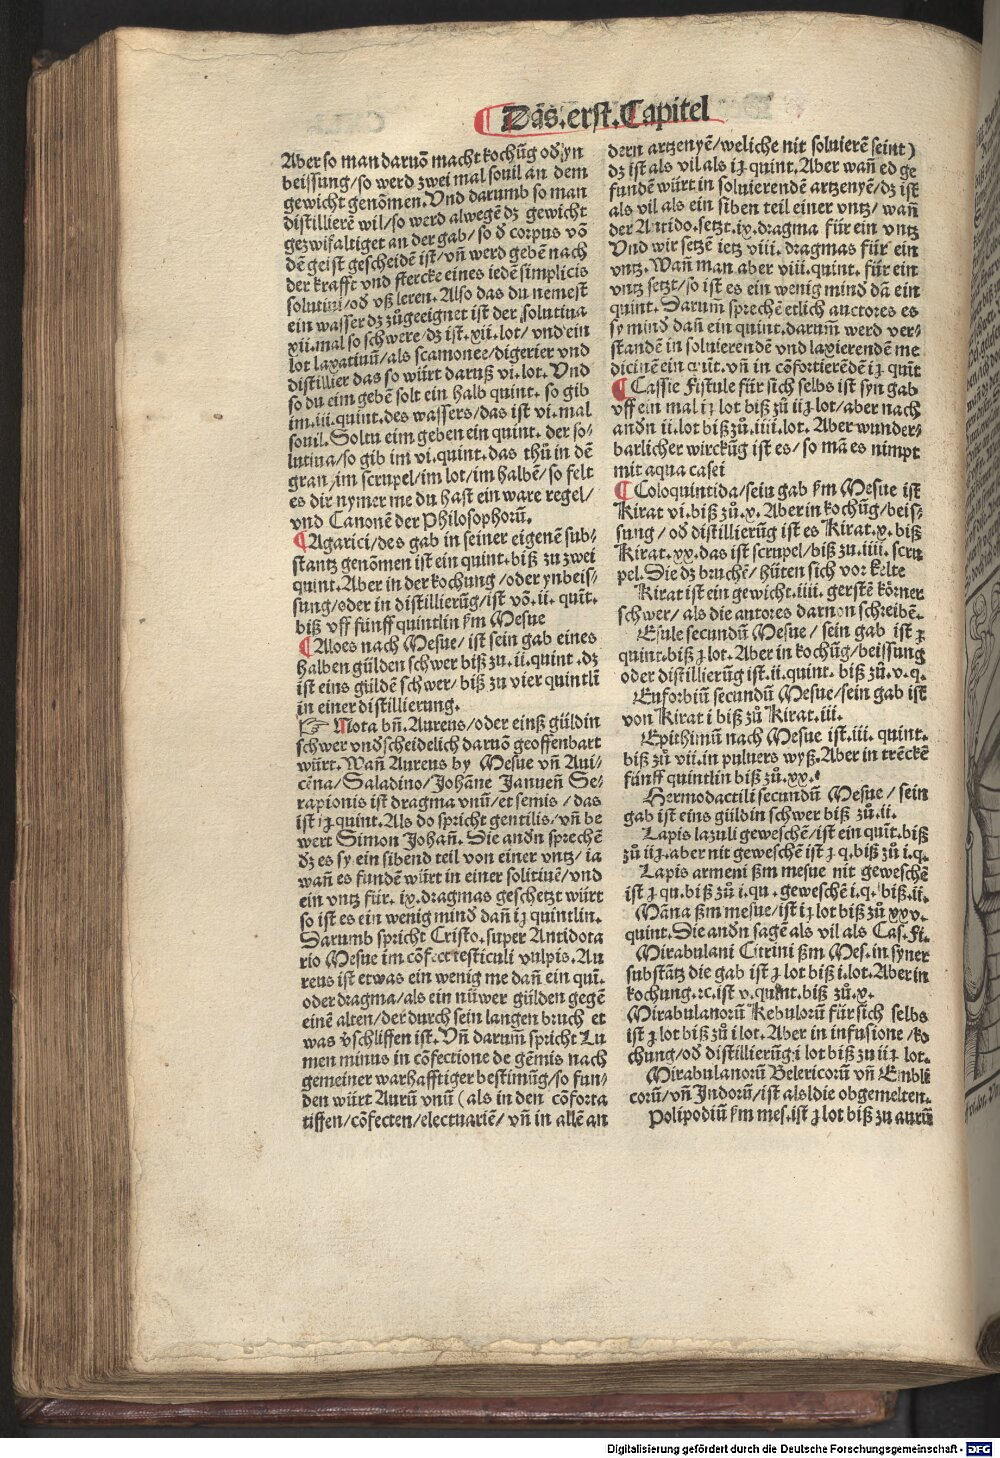 ¶ Das.erst.Capitel
Aber so man daruō macht kochūg od̕ yn
beissung/so werd zwei mal souil an dem
gewicht genōmen. Vnd darumb so man
distillierē wil/so werd alwegē dz gewicht
gezwifaltiget an der gab/so d̕ corpus vō
dē geist gescheidē ist/vn̄ werd gebē nach
der krafft vnd stercke eines iedē simplicis
solutiui/od̕ vß leren. Also das du nemest
ein wasser dz zůgeeignet ist der solutiua
xii.mal so schwere/dz ist.xii.lot/vnd ein
lot laxatiuū/als scamonee/digerier vnd
distillier das so würt daruß vi.lot. Vnd
so du eim gebē solt ein halb quint. so gib
im.iii.quint.des wassers/das ist vi.mal
souil. Soltu eim geben ein quint. der so-
lutiua/so gib im vi.quint.das thů in dē
gran/im scrupel/im lot/im halbē/so felt
es dir nymer me du hast ein ware regel/
vnd Canonē der Philosophorū.
¶ Agarici/des gab in seiner eigenē sub-
stantz genōmen ist ein quint.biß zu zwei
quint. Aber in der kochung/oder ynbeis-
sung/oder in distillierūg/ist vō.ii.quīt.
biß vff fünff quintlin ßm Mesue
¶ Aloes nach Mesue/ist sein gab eines
halben gülden schwer biß zu.ii.quint.dz
ist eins güldē schwer/biß zu vier quintlī
in einer distillierung.
☞ Nota bn̄. Aureus/oder einß güldin
schwer vndscheidelich daruō geoffenbart
würt. Wan̄ Aureus by Mesue vn̄ Aui-
cēna/Saladino/Johāne Januen̄ Se-
rapionis ist dragma vnū/et semis/das
ist iȷ quint. Als do spricht gentilis/vn̄ be
wert Simon Johan̄. Die andn̄ sprechē
dz es sy ein sibend teil von einer vntz/ia
wan̄ es fundē würt in einer solitiuē/vnd
ein vntz für.ix.dragmas geschetzt würt
so ist es ein wenig mind̕ dan̄ iȷ quintlin.
Darumb spricht Cristo.super Antidota
rio Mesue im cōfect testiculi vulpis. Au
reus ist etwas ein wenig me dan̄ ein quī.
oder dragma/als ein nüwer gülden gegē
einē alten/der durch sein langen bruch et
was v̕schliffen ist. Vn̄ darum̄ spricht Lu
men minus in cōfectione de gēmis nach
gemeiner warhafftiger bestimūg/so fun-
den würt Aurū vnū (als in den cōforta
tiffen/cōfecten/electuariē/vn̄ in allē an
dern artzenyē/weliche nit soluierē seint)
dz ist als vil als iȷ quint. Aber wan̄ ed ge
fundē würt in soluierendē artzenyē/dz ist
als vil als ein siben teil einer vntz/wan̄
der Antido.setzt.ix.dragma für ein vntz
Vnd wir setzē ietz viii.dragmas für ein
vntz. Wan̄ man aber viii.quint.für ein
vntz setzt/so ist es ein wenig mind̕ dā ein
quint. Darum̄ sprechē etlich auctores es
sy mind̕ dan̄ ein quint.darum̄ werd ver-
standē in soluierendē vnd laxierendē me
dicinē ein quīt.vn̄ in cōfortierēdē iȷ quīt
¶ Cassie Fistule für sich selbs ist syn gab
vff ein mal iȷ lot biß zů iiȷ lot/aber nach
andn̄ ii.lot biß zů.iiii.lot. Aber wunder-
barlicher wirckūg ist es/so mā es nimpt
mit aqua casei
¶ Coloquintida/sein gab ßm Mesue ist
Kirat vi.biß zů.x. Aber in kochūg/beis-
sung/od̕ distillierūg ist es Kirat.x.biß
Kirat.xx.das ist scrupel/biß zu.iiii.scru
pel. Die dz bruchē/hüten sich vor kelte
Kirat ist ein gewicht.iiii.gerstē körner
schwer/als die autores daruon schreibē.
Esule secundū Mesue/sein gab ist ȷ
quint.biß ȷ lot. Aber in kochūg/beissung
oder distillierūg ist.ii.quint.biß zů.v.q.
Euforbiū secundū Mesue/sein gab ist
von Kirat i biß zů Kirat.iii.
Epithimū nach Mesue ist.iii.quint.
biß zů vii.in puluers wyß. Aber in trēckē
fünff quintlin biß zů.xx.
Hermodactili secundū Mesue/sein
gab ist eins güldin schwer biß zů.ii.
Lapis lazuli geweschē/ist ein quīt.biß
zů iiȷ.aber nit geweschē ist ȷ q.biß zů i.q.
Lapis armeni ßm mesue nit geweschē
ist ȷ qu.biß zů i.qu.geweschē i.q.biß.ii.
Māna ßm mesue/ist iȷ lot biß zů xxv.
quint. Die andn̄ sagē als vil als Cas.Fi.
Mirabulani Citrini ßm Mes.in syner
substātz die gab ist ȷ lot biß i.lot. Aber in
kochung.ꝛc.ist v.quint.biß zů.x.
Mirabulanorū Kebulorū für sich selbs
ist ȷ lot biß zů i lot. Aber in infusione/ko
chung/od̕ distillierūg i lot biß zu iiȷ lot.
Mirabulanorū Belericorū vn̄ Embli
corū/vn̄ Jndorū/ist als die obgemelten.
Polipodiū ßm mes.ist ȷ lot biß zu aurū
Digitalisierung gefördert durch die Deutsche Forschungsgemeinschaft - DFG